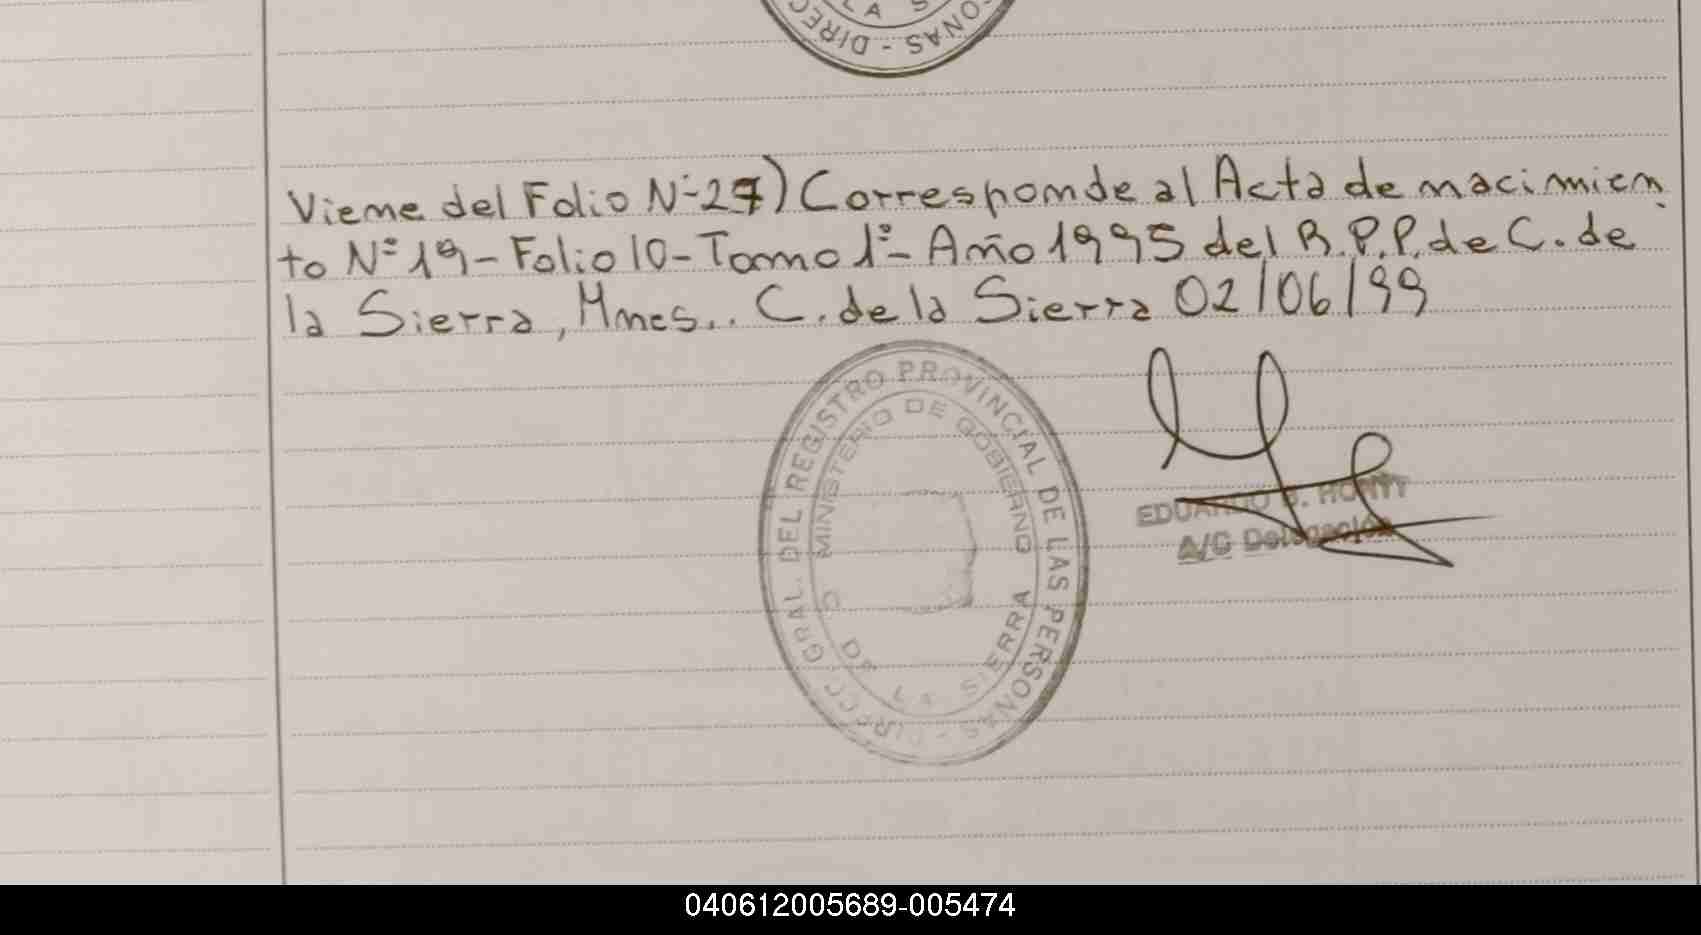 LA S
ONAS - DIREC
Viene del Folio Nº 27) Corresponde al Acta de nacimien
to Nº 19 - Folio 10 - Tomo 1º - Año 1995 del R.P.P. de C. de
la Sierra, Mnes.. C. de la Sierra 02/06/99
DIRECC. GRAL. DEL REGISTRO PROVINCIAL DE LAS PERSONAS -
MINISTERIO DE GOBIERNO
C. DE LA SIERRA
EDUARDO
A/C Delegación
040612005689-005474